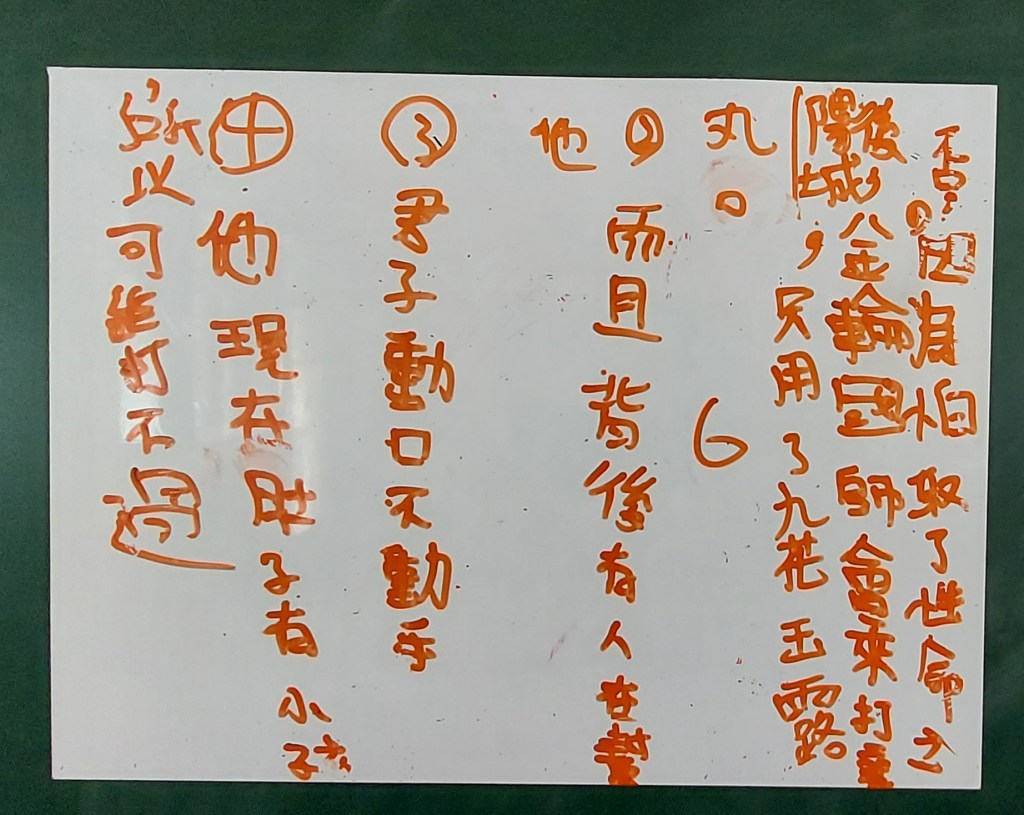 不是,因為怕取了性命之
後,金輪國師會來打襄
陽城,只用了九花玉露
丸。
6
②而且背後有人在幫
他
③君子動口不動手
④他現在肚子有小孩
,所以可能打不過